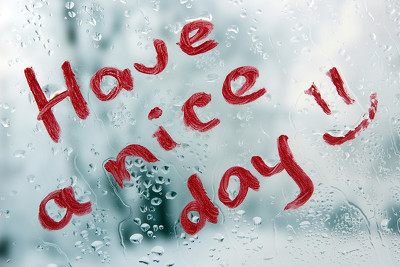 Have
a nice
day !!